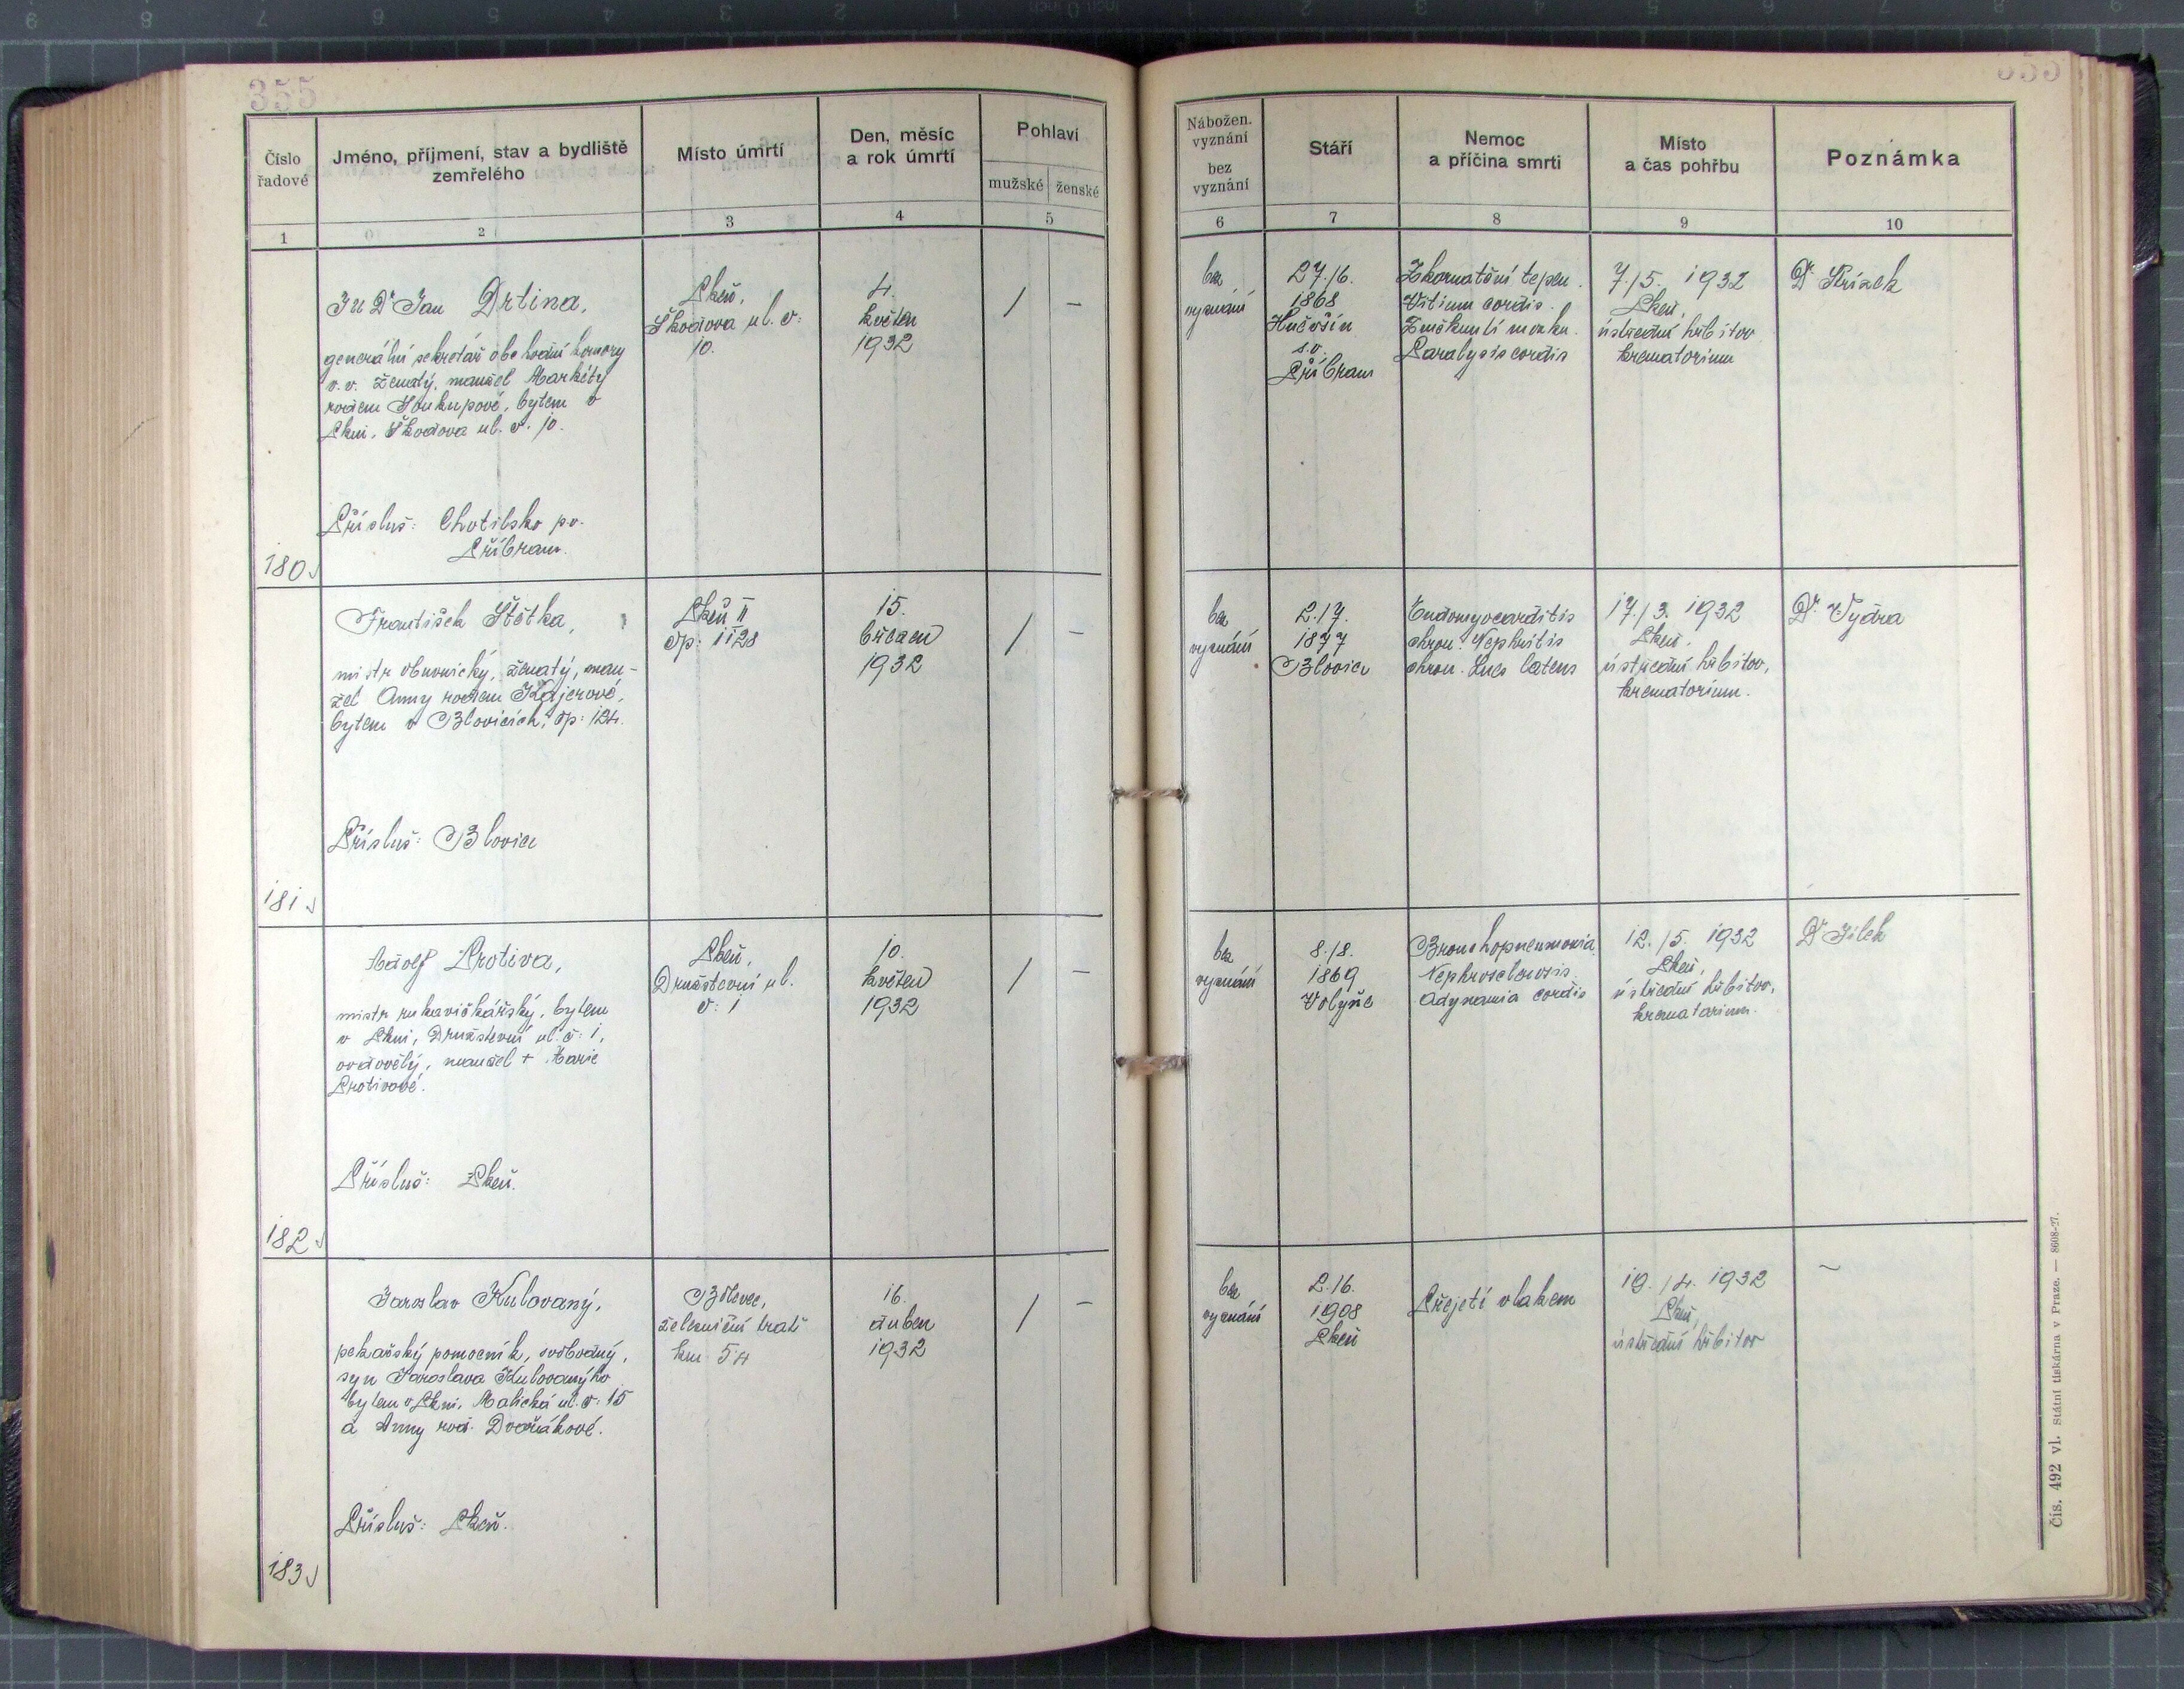 355
Číslo
řadové
Jméno, příjmení, stav a bydliště
zemřelého
Místo úmrtí
Den, měsíc
a rok úmrtí
Pohlaví
mužské ženské
1 2 3 4 5
JUDr Jan Drtina,
generální sekretář obchodní komory
v. v. ženatý, manžel Markéty
rodem Soukupové, bytem v
Plzni, Škodova ul. č. 10.
Přísluš: Chotilsko po.
Příbram.
180
Plzeň,
Škodova ul. č:
10.
4.
květen
1932
/ –
František Štětka,
mistr obuvnický, ženatý, man-
žel Anny rodem Kajerové,
bytem v Blovicích, čp: 124.
Přísluš: Blovice
181
Plzeň II
čp: 1128
15.
březen
1932
/ –
Adolf Protiva,
mistr rukavičkářský, bytem
v Plzni, Družstevní ul. č: 1,
ovdovělý, manžel + Marie
Protivové.
Přísluš: Plzeň.
182
Plzeň,
Družstevní ul.
č: 1
10.
květen
1932
/ –
Jaroslav Kulovaný,
pekařský pomocník, svobodný,
syn Jaroslava Kulovaného
bytem v Plzni, Malická ul. č: 15
a Anny roz. Dvořákové.
Přísluš: Plzeň.
183
Bolevec,
železniční trať
km 54
16.
duben
1932
/ –
355
Nábožen.
vyznání
bez
vyznání
Stáří
Nemoc
a příčina smrti
Místo
a čas pohřbu
Poznámka
6 7 8 9 10
bez
vyznání
27./6.
1868
s. o.
Příbram
Zkornatění tepen.
Vitium cordis.
Změknutí mozku.
Paralysis cordis
7./5. 1932
Plzeň,
ústřední hřbitov
krematorium
Dr Křížek
bez
vyznání
2./7.
1877
Blovice
Endomyocarditis
chron. Nephritis
chron. Lues latens
17./3. 1932
Plzeň.
ústřední hřbitov,
krematorium.
Dr. Vydra
bez
vyznání
8./8.
1869
Volyně
Bronchopneumonia
Nephrosclerosis.
Adynamia cordis
12./5. 1932
Plzeň,
ústřední hřbitov,
krematorium.
Dr Jílek
bez
vyznání
2./6.
1908
Plzeň
Přejetí vlakem
19./4. 1932
Plzeň,
ústřední hřbitov
–
Čís. 492 vl. Státní tiskárna v Praze. — 8608-27.